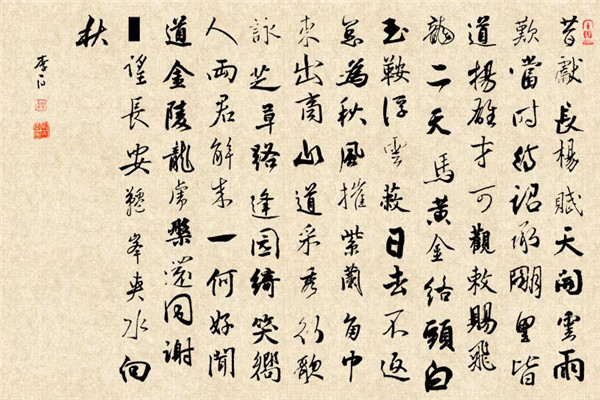 昔獻長楊賦天開雲雨
歡當時待詔承明里皆
道揚雄才可觀敕賜飛
龍二天馬黃金絡頭白
玉鞍浮雲蔽日去不返
總為秋風摧紫蘭角巾
東出商山道采秀行歌
詠芝草路逢園綺笑嚮
人兩君解來一何好聞
道金陵龍虎槃還同謝
望長安韆峯夾水向
秋
李白